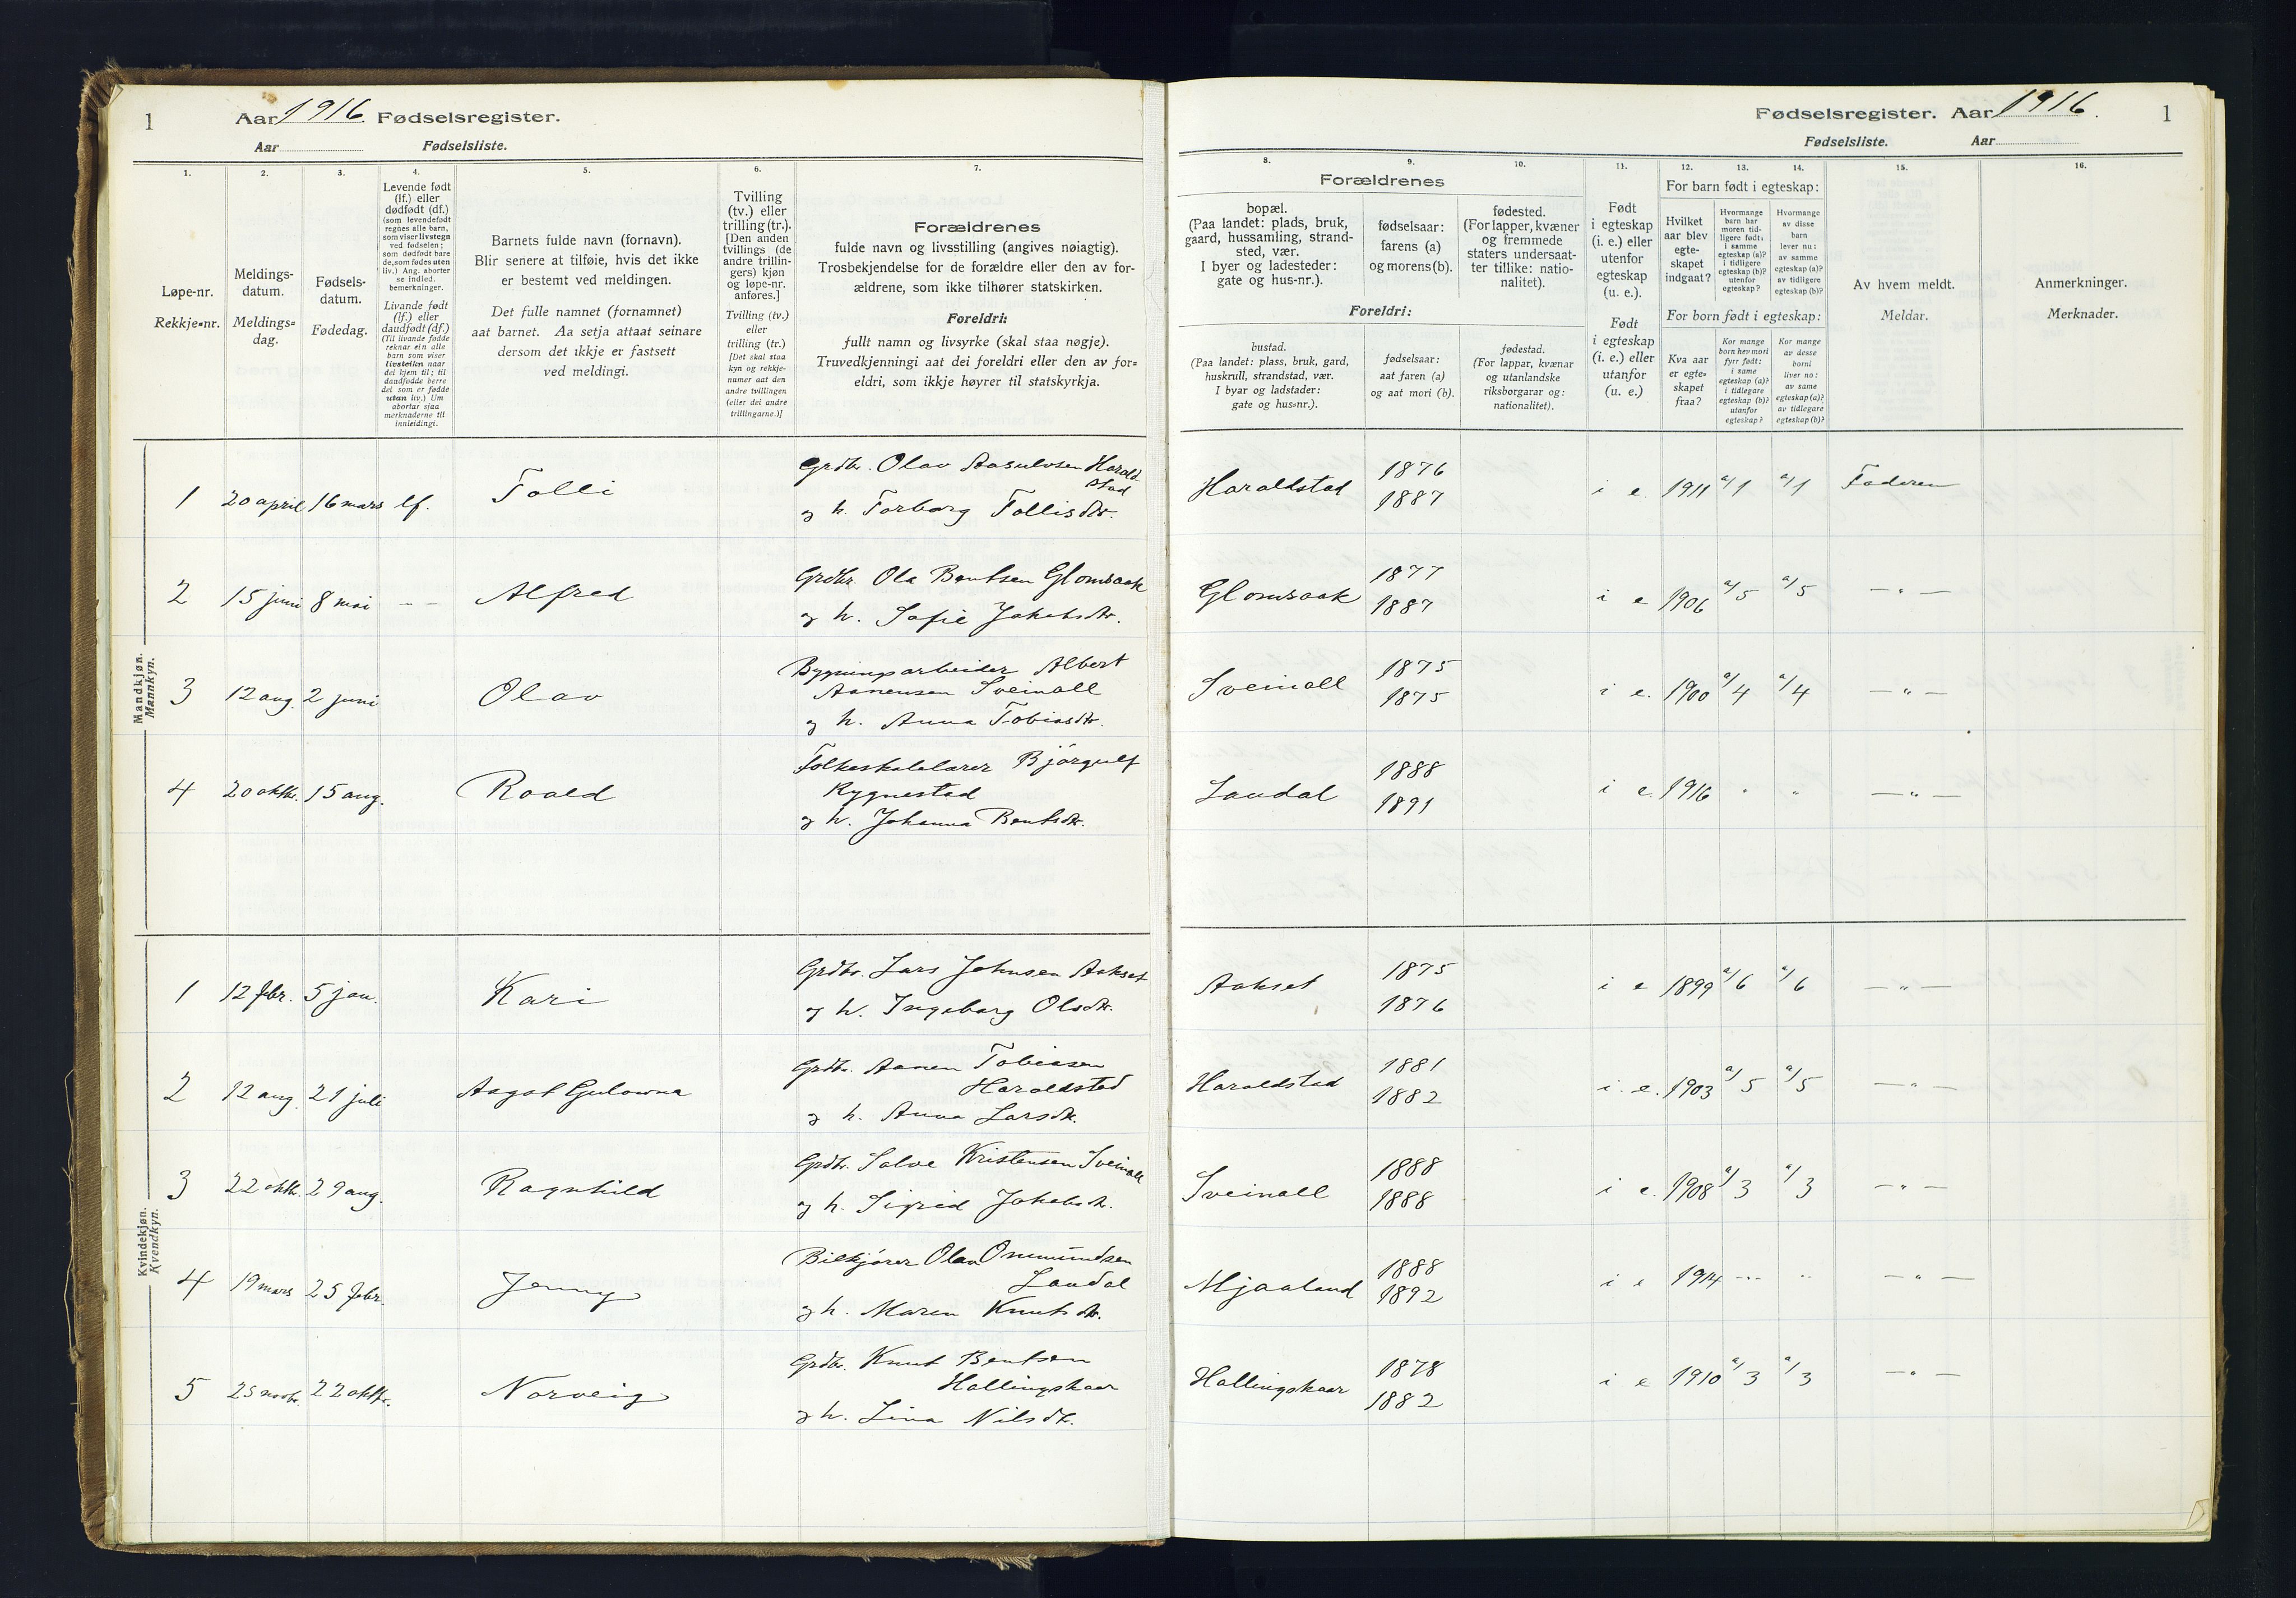 1 Aar 1916. Fødselsregister.
Aar Fødselsliste.
1. 2. 3. 4. 5. 6. 7.
Løpe-nr.
Rekkje-nr.
Meldings-
datum.
Meldings-
dag.
Fødsels-
datum.
Fødedag.
Levende født
(lf.) eller
dødfødt (df.)
(som levendefødt
regnes alle barn,
som viser livstegn
ved fødselen;
som dødfødt bare
de, som fødes uten
liv.) Ang. aborter
se indled.
bemerkninger.
Livande født
(lf.) eller
daudfødt (df.)
(Til livande fødde
reknar ein alle
barn som viser
livsteikn naar
dei kjem til; til
daudfødde berre
dei som er fødde
utan liv.) Um
abortar sjaa
merknaderne til
innleidingi.
Barnets fulde navn (fornavn).
Blir senere at tilføie, hvis det ikke
er bestemt ved meldingen.
Det fulle namnet (fornamnet)
aat barnet. Aa setja attaat seinare
dersom det ikkje er fastsett
ved meldingi.
Tvilling
(tv.) eller
trilling (tr.).
[Den anden
tvillings (de
andre trillin-
gers) kjøn
og løpe-nr.
anføres.]
Tvilling (tv.)
eller
trilling (tr.)
[Det skal staa
kyn og rekkje-
numer aat den
andre tvillingen
(eller dei andre
trillingarne.)]
Forældrenes
fulde navn og livsstilling (angives nøiagtig).
Trosbekjendelse for de forældre eller den av for-
ældrene, som ikke tilhører statskirken.
Foreldri:
fullt namn og livsyrke (skal staa nøgje).
Truvedkjenningi aat dei foreldri eller den av for-
eldri, som ikkje høyrer til statskyrkja.
Mandkjøn.
Mannkyn.
1 20 april 16 mars lf. Tolli Grdbr. Olav Aasulvsen Harald
stad
og h. Torborg Tollisdtr.
2 15 juni 8 mai - - Alfred Grdbr. Ola Bentsen Glomsaak
og h. Sofie Jakobsdtr.
3 12 aug. 2 juni Olav Bygningsarbeider Albert
Aanensen Sveinall
og h. Anna Tobiasdtr.
4 20 oktbr. 15 aug. Roald Folkeskolelærer Bjørgulf
Rygnestad
og h. Johanna Bentsdtr.
Kvindekjøn.
Kvendkyn.
1 12 febr. 5 jan. Kari Grdbr. Lars Johnsen Aakset
og h. Ingeborg Olsdtr.
2 12 aug. 21 juli Aagot Gulowna Grdbr. Aanen Tobiassen
Haraldstad
og h. Anna Larsdtr.
3 22 oktbr. 29 aug. Ragnhild Grdbr. Salve Kristensen Sveinall
og h. Sigrid Jakobsdtr.
4 19 mars 25 febr. Jenny Bilkjører Olav Ommundsen
Laudal
og h. Maren Knutsdtr.
5 25 novbr. 22 oktbr. Norveig Grdbr. Knut Bentsen
Hallingskaar
og h. Lina Nilsdtr.
Fødselsregister. Aar 1916. 1
Fødselsliste. Aar
8. 9. 10. 11. 12. 13. 14. 15. 16.
Forældrenes
bopæl.
(Paa landet: plads, bruk,
gaard, hussamling, strand-
sted, vær.
I byer og ladesteder:
gate og hus-nr.).
fødselsaar:
farens (a)
og morens (b).
fødested.
(For lapper, kvæner
og fremmede
staters undersaat-
ter tillike: natio-
nalitet).
Foreldri:
bustad.
(Paa landet: plass, bruk, gard,
huskrull, strandstad, vær.
I byar og ladstader:
gate og hus-nr.).
fødselsaar:
aat faren (a)
og aat mori (b).
fødestad.
(For lappar, kvænar
og utanlandske
riksborgarar og:
nationalitet).
Født
i egteskap
(i. e.) eller
utenfor
egteskap
(u. e.).
Født
i egteskap
(i. e.) eller
utanfor
(u. e.)
For barn født i egteskap:
Hvilket
aar blev
egte-
skapet
indgaat?
Hvormange
barn har
moren tid-
ligere født:
i samme
egteskap (a)?
i tidligere
egteskap (b)?
utenfor
egteskap?
Hvormange
av disse
barn
lever nu:
av samme
egteskap (a)?
av tidligere
egteskap (b)?
For born født i egteskap:
Kva aar
er egte-
skapet
fraa?
Kor mange
born hev mori
fyrr født:
i same
egteskap (a)?
i tidlegare
egteskap (b)?
utanfor
egteskap?
Kor mange
av desse
borni
liver no:
av same
egteskap (a)?
av tidlegare
egteskap (b)?
Av hvem meldt.
Meldar.
Anmerkninger.
Merknader.
Haraldstad 1876
1887 i e. 1911 a/1 a/1 Faderen
Glomsaak 1877
1887 i e 1906 a/5 a/5 — " —
Sveinall 1875
1875 i e. 1900 a/4 a/4 — " —
Laudal 1888
1891 i e. 1916 " " — " —
Aakset 1875
1876 i e 1899 a/6 a/6 — " —
Haraldstad 1881
1882 i. e. 1903 a/5 a/5 — " —
Sveinall 1888
1888 i e. 1908 a/3 a/3 — " —
Mjaaland 1888
1892 i e 1914 - " - " — " —
Hallingskaar 1878
1882 i e 1910 a/3 a/3 — " —